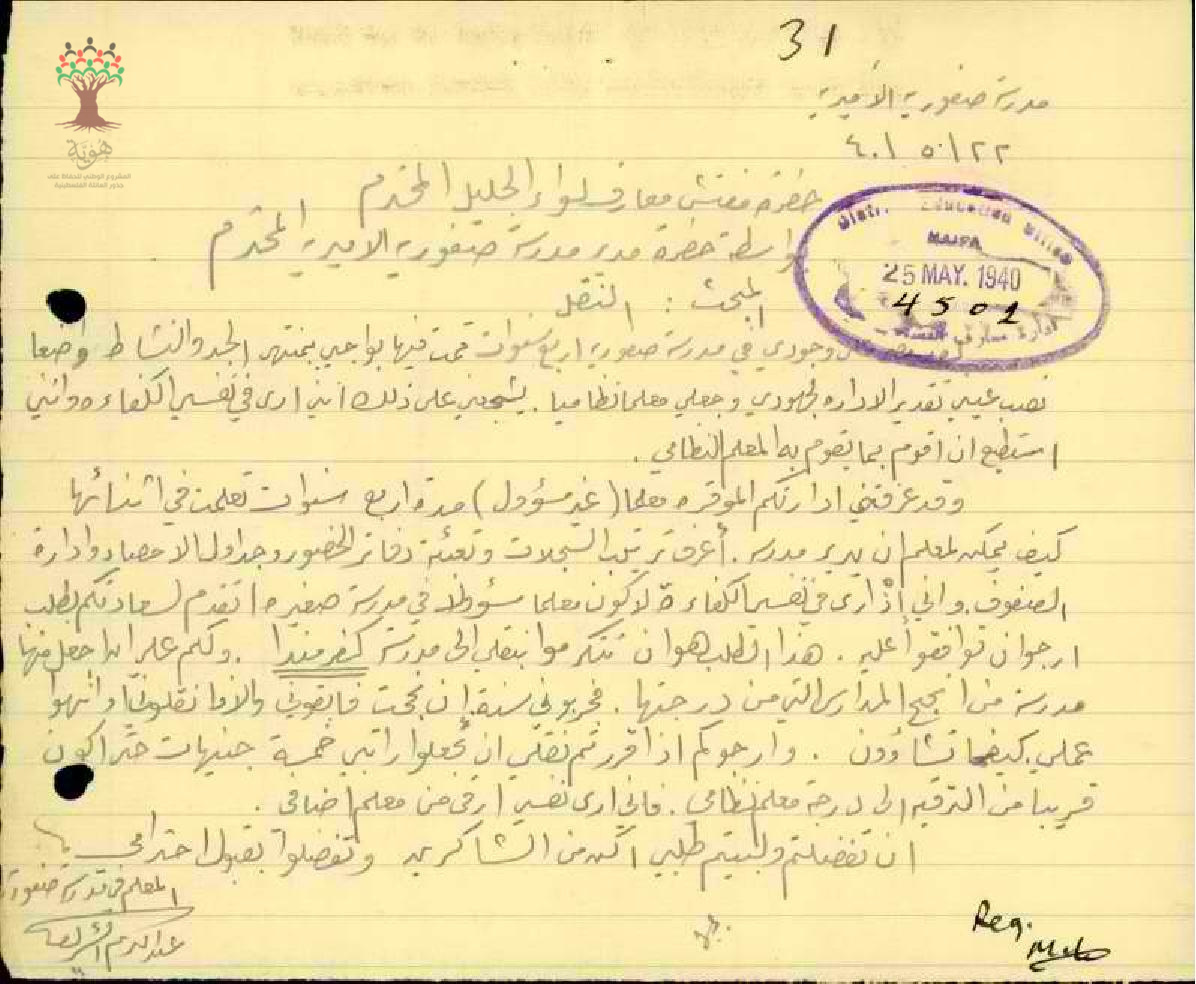 31
مدرسة صفورية الأميرية
٤٠/٥/٢٢
حضرة مفتش معارف لواء الجليل المحترم
بواسطة حضرة مدير مدرسة صفورية الاميرية المحترم
المبحث : النقل
Distr. Education Office
HAIFA
25 MAY. 1940
4501
ادارة معارف
وجودي في مدرسة صفورية اربع سنوات قمت فيها بواجبي بمنتهى الجد والنشاط واضعا
نصب عيني تقدير الاداره لجهودي وجعلي معلما نظاميا . يشجعني على ذلك انني ارى في نفسي الكفاءه وانني
استطيع ان اقوم بما يقوم به المعلم النظامي .
وقد عرفتني ادارتكم الموقره معلما (غير مسؤول) مدة اربع سنوات تعلمت في اثنائها
كيف يمكن لمعلم ان يدير مدرسه . أعرف ترتيب السجلات وتعبئة دفاتر الحضور وجداول الاحصاء وادارة
الصفوف . واني إذ ارى في نفسي الكفاءة لاكون معلما مسؤولا في مدرسة صغيره اتقدم لسعادتكم بطلب
ارجو ان توافقوا عليه . هذا الطلب هو ان تتكرموا بنقلي الى مدرسة كفرمندا . ولكم علي ان اجعل منها
مدرسة من انجح المدارس التي من درجتها . فجربوني سنة إن نجحت فابقوني والا فانقلوني او انهوا
عملي كيفما تشاؤون . وارجوكم اذا قررتم نقلي ان تجعلوا راتبي خمسة جنيهات حتى اكون
قريبا من الترقيه الى درجة معلم نظامي . فاني ارى نفسي ارقى من معلم اضافي .
ان تفضلتم ولبيتم طلبي اكن من الشاكرين وتفضلوا بقبول احترامي
المعلم في مدرسة صفورية
عبد الكريم
Reg.
هوية
المشروع الوطني للحفاظ على
جذور العائلة الفلسطينية